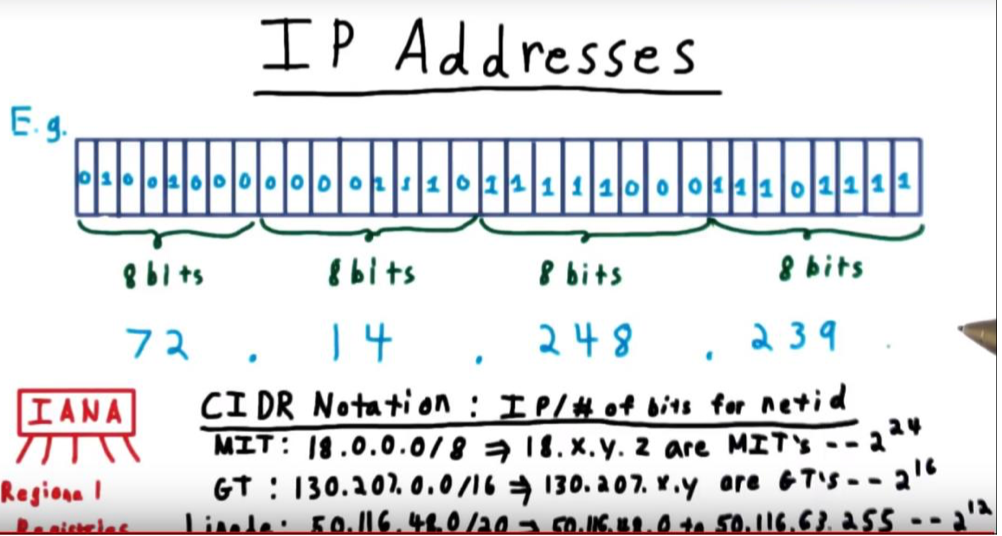 IP Addresses
E.g.
0 1 0 0 1 0 0 0 0 0 0 0 1 1 1 0 1 1 1 1 1 0 0 0 1 1 1 0 1 1 1 1
8 bits 8 bits 8 bits 8 bits
72 . 14 . 248 . 239
IANA
Regional
Registries
CIDR Notation : IP/# of bits for netid
MIT: 18.0.0.0/8 ⇒ 18.x.y.z are MIT's -- 2^24
GT : 130.207.0.0/16 ⇒ 130.207.x.y are GT's -- 2^16
Linode: 50.116.48.0/20 → 50.116.48.0 to 50.116.63.255 -- 2^12